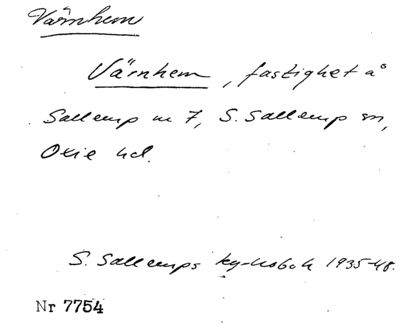 Värnhem
Värnhem, fastighet å
Sallerup nr 7, S. Sallerup sn,
Oxie hd.
S. Sallerups kyrkobok 1935-48.
Nr 7754